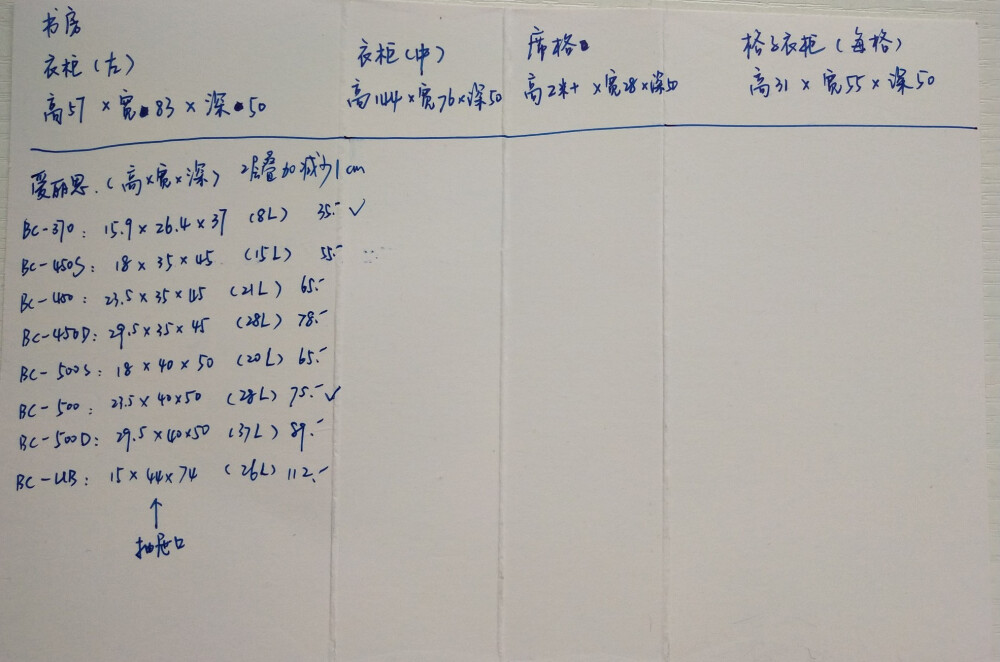 书房
衣柜(左)
高57 × 宽83 × 深50
衣柜(中)
高144×宽76×深50
席格
高2米+ ×宽28×深50
格子衣柜(每格)
高31 × 宽55 × 深50
爱丽思.(高×宽×深) 2层叠加减少1cm
BC-370: 15.9×26.4×37 (8L) 35.- ✓
BC-450S: 18 × 35 × 45 (15L) 55.-
BC-450: 23.5×35×45 (21L) 65.-
BC-450D: 29.5×35×45 (28L) 78.-
BC-500S: 18 × 40 × 50 (20L) 65.-
BC-500: 23.5×40×50 (28L) 75.- ✓
BC-500D: 29.5×40×50 (37L) 89.-
BC-UB: 15×44×74 (26L) 112.-
↑
抽屉口